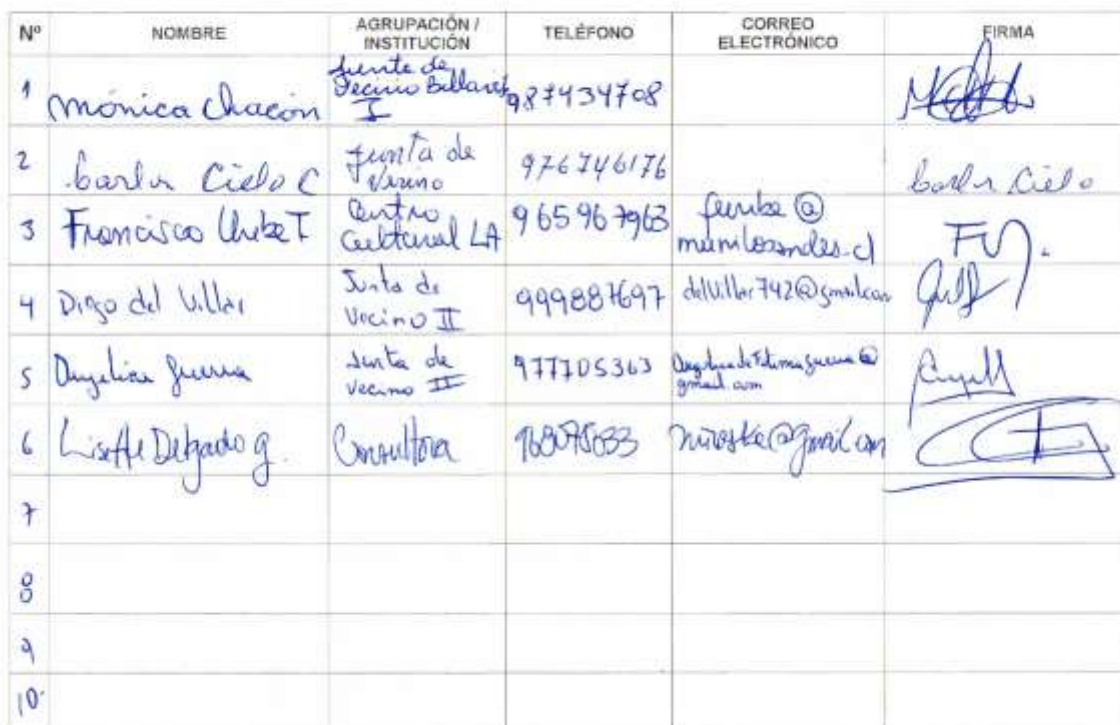 Nº NOMBRE AGRUPACIÓN / INSTITUCIÓN TELÉFONO CORREO ELECTRÓNICO FIRMA
1 Mónica Chacón Junta de Vecino I 987434708
2 Carlos Cielo C Junta de Vecino 976746176 Carlos Cielo
3 Francisco Uribe T Centro Cultural LA 965967963 furibe@munilosandes.cl FU
4 Diego del Villar Junta de Vecino II 999887697 delvillar742@gmail.com
5 Angelica Guerra Junta de Vecino II 977705363 gmail.com
6 Lisette Delgado g. Consultora @gmail.com
7
8
9
10